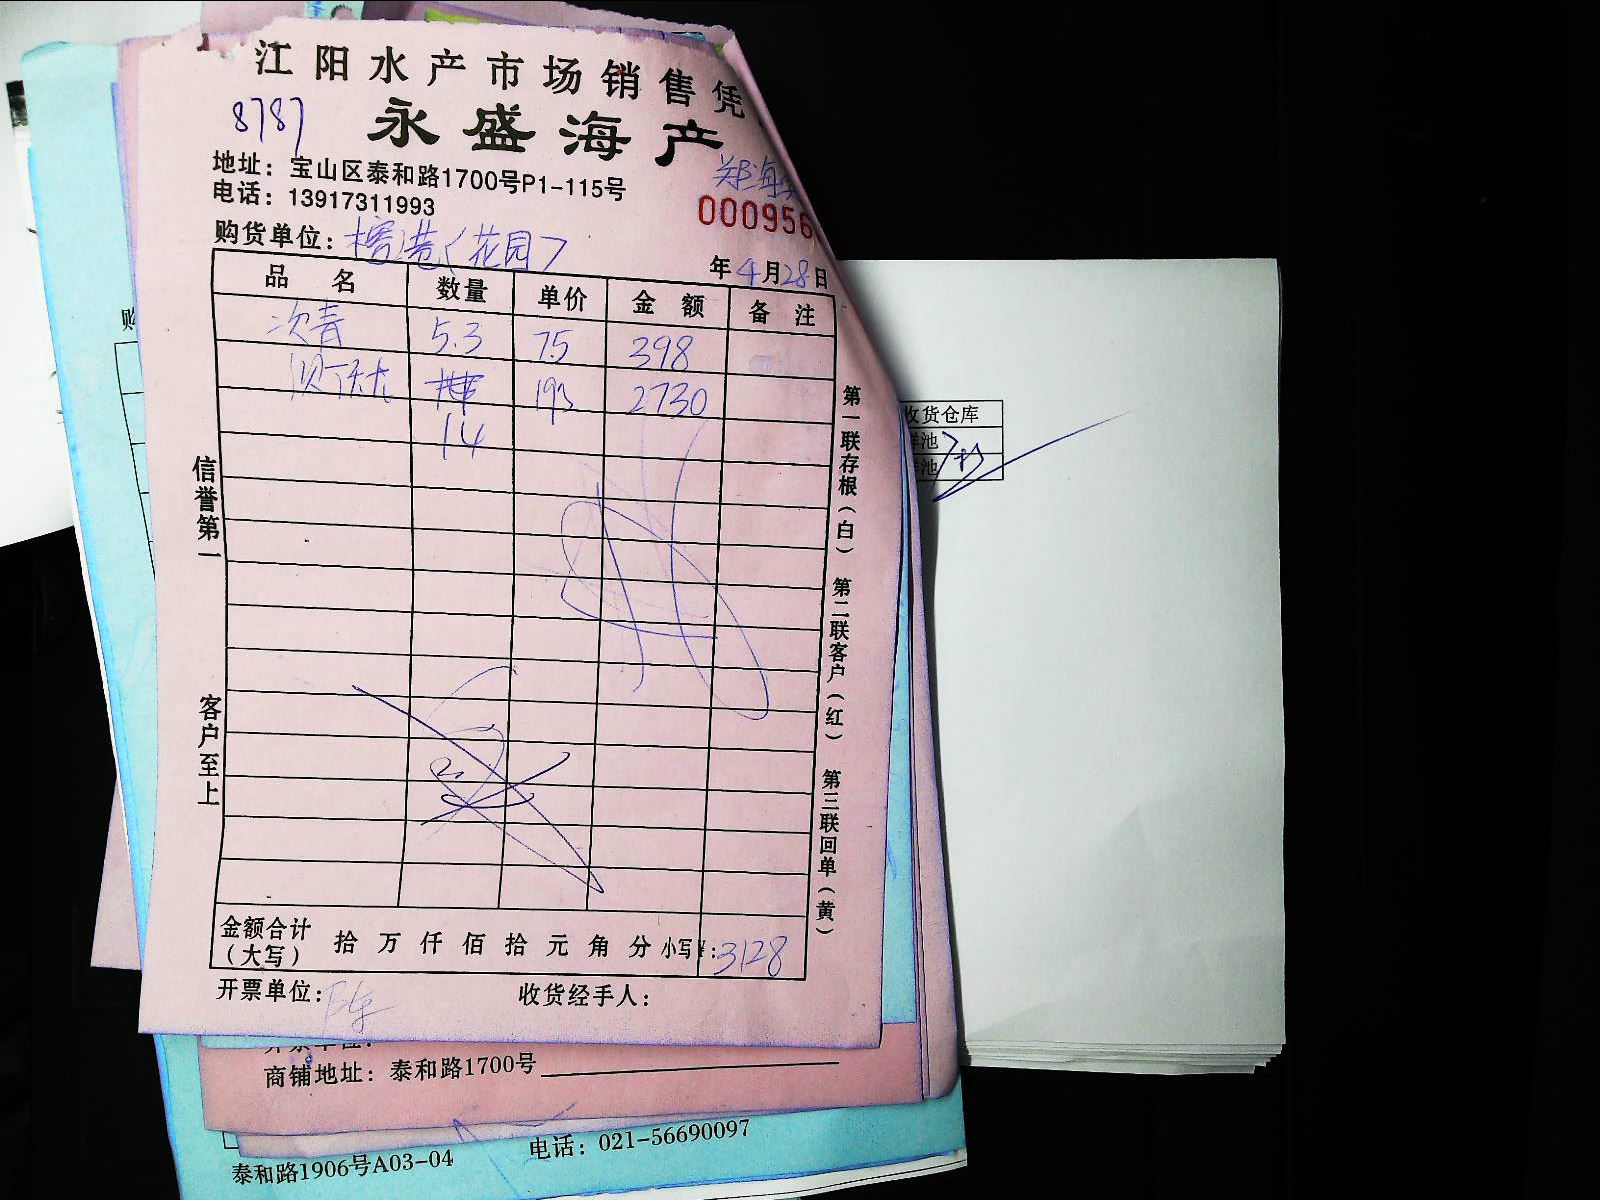 江阳水产市场销售凭
8787
永盛海产
地址：宝山区泰和路1700号P1-115号
电话：13917311993
000956
购货单位：榕港（花园）
年4月28日
品名 数量 单价 金额 备注
次青 5.3 75 398
195 2730
14
信誉第一
客户至上
第一联存根（白） 第二联客户（红） 第三联回单（黄）
金额合计（大写） 拾 万 仟 佰 拾 元 角 分 小写¥：3128
开票单位：陈
收货经手人：
收货仓库
鲜池
鲜池
商铺地址：泰和路1700号
电话：021-56690097
泰和路1906号A03-04